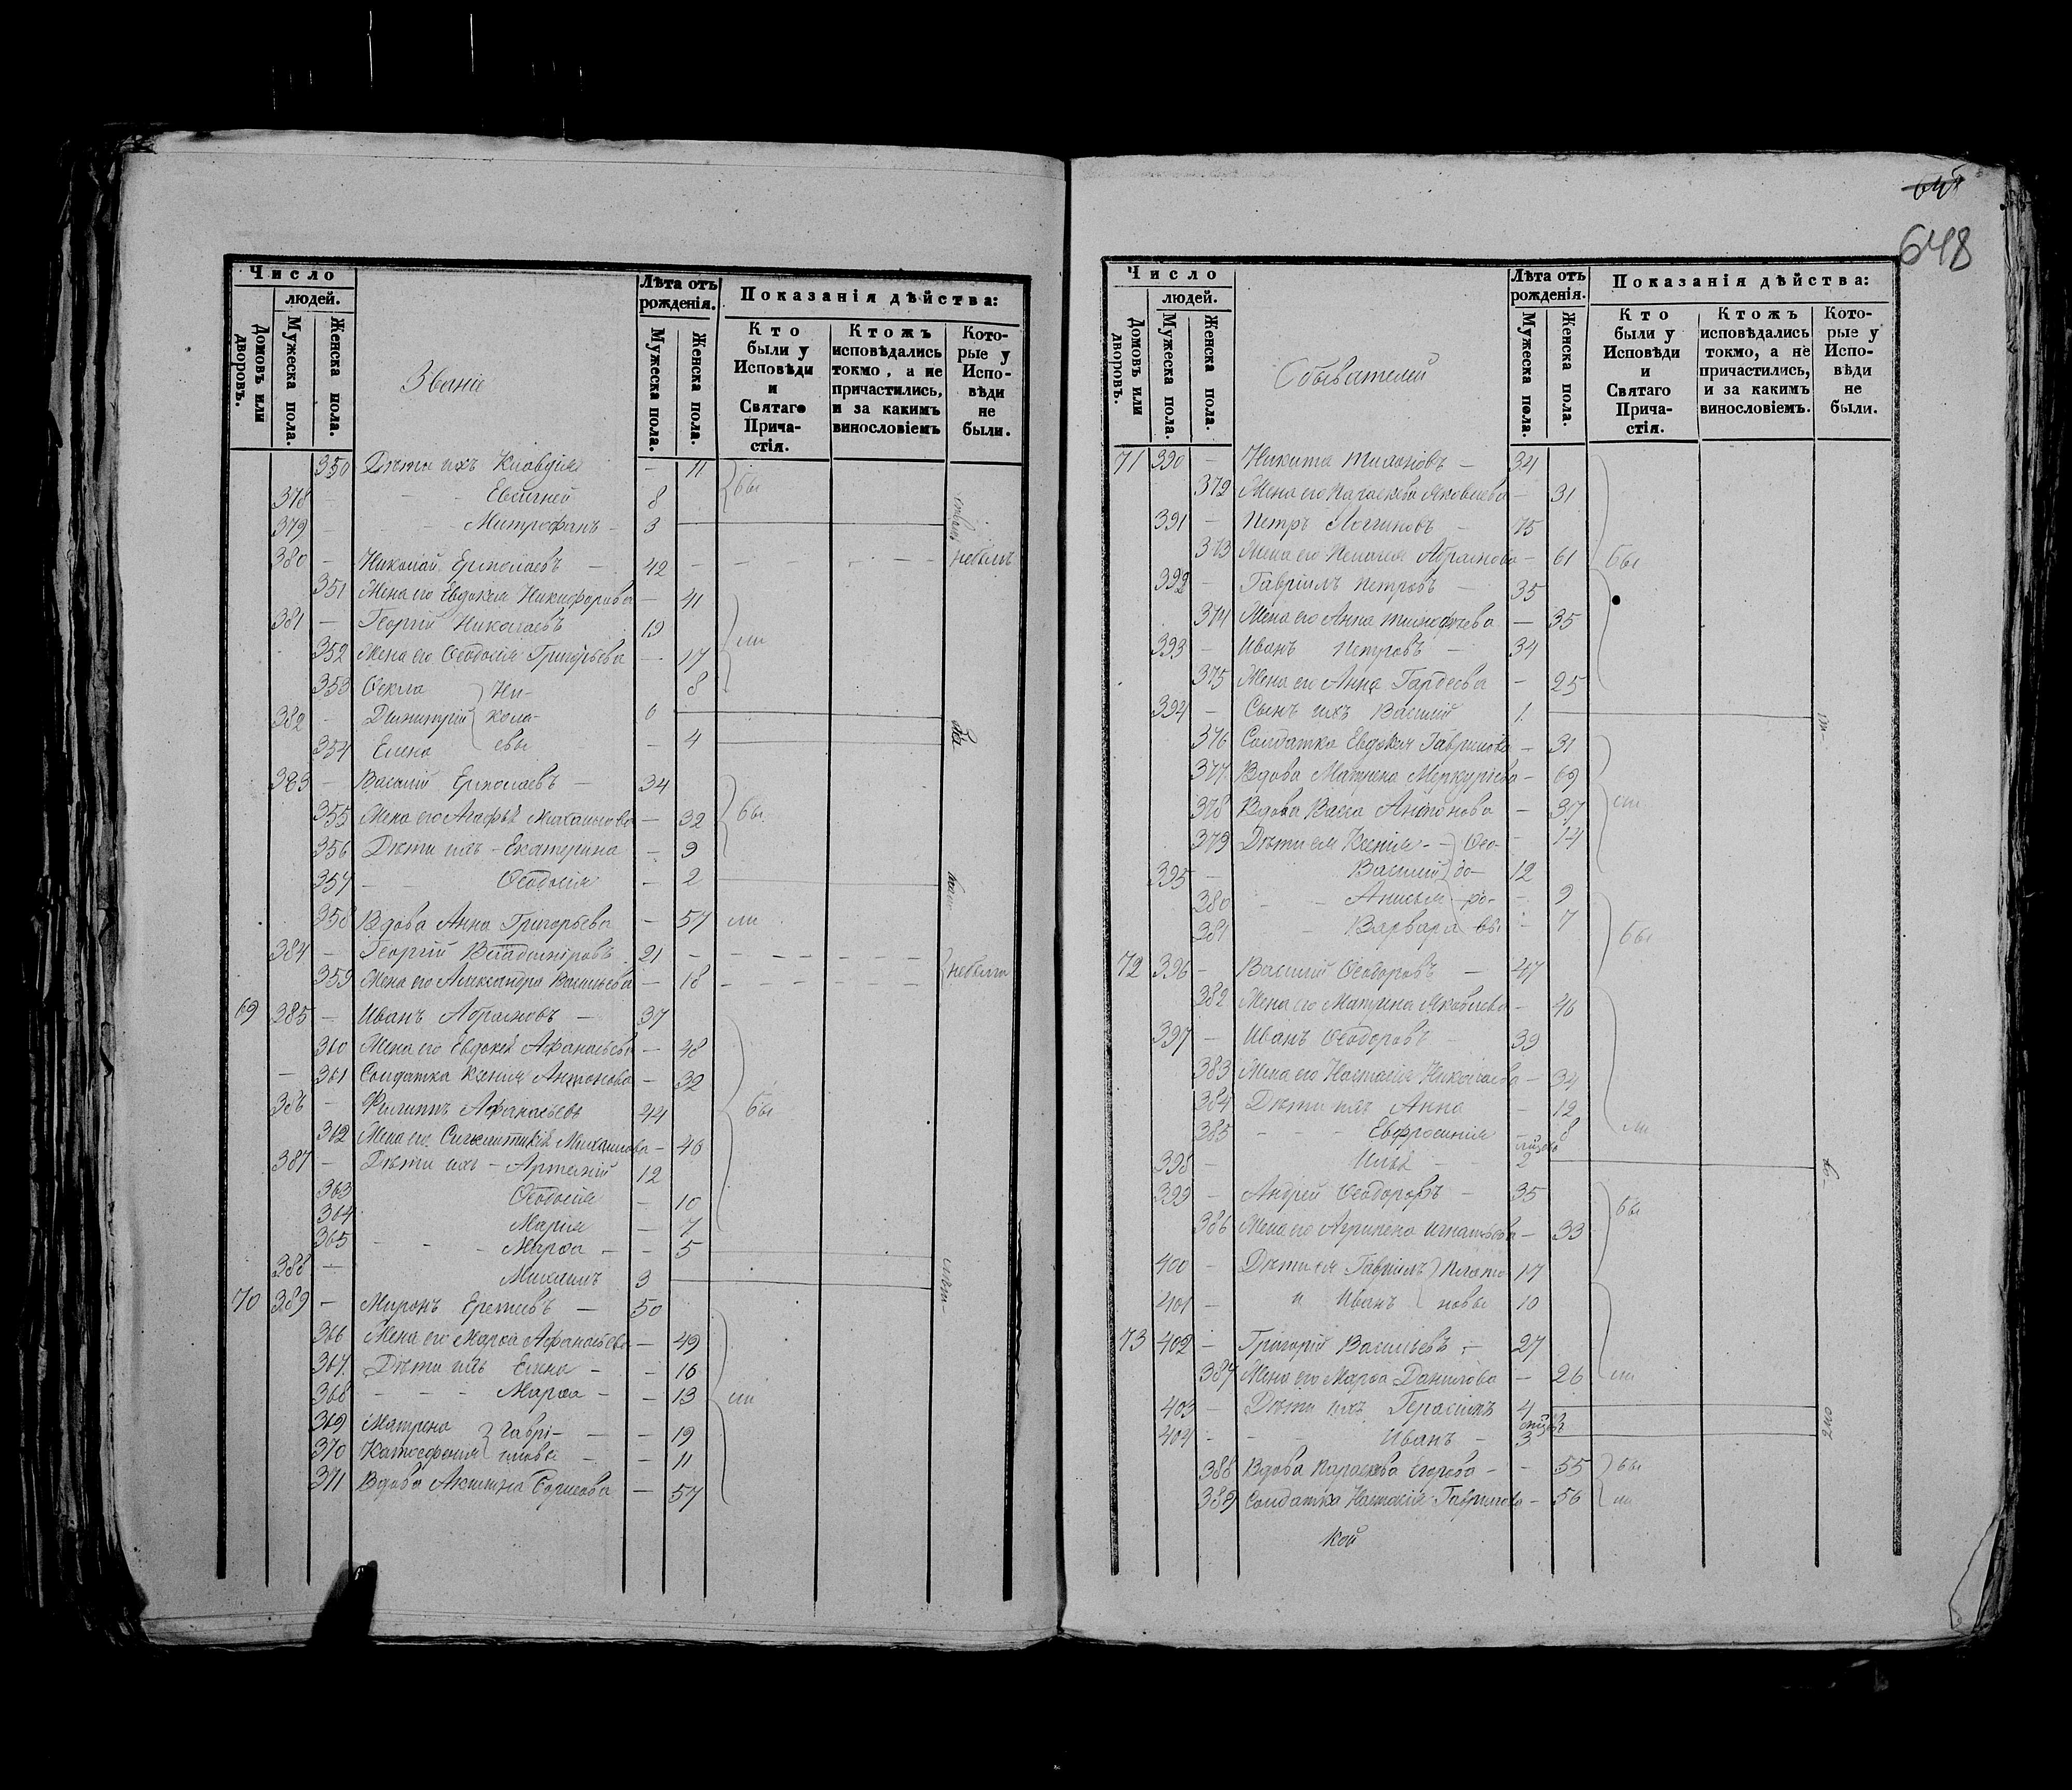 Число
людей.
Домовъ или дворовъ.
Мужеска пола.
Женска пола.
Званіе
Лѣта отъ рожденія.
Мужеска пола.
Женска пола.
Показанія дѣйства:
Кто были у Исповѣди и Святаго Причастія.
Ктожъ исповѣдались токмо, а не причастились, и за какимъ винословіемъ
Которые у Исповѣди не были.
350 Дѣти ихъ Клавдія — 11 бы
378 — Евсигней 8
379 — Митрофанъ — 3
380 — Николай Ермолаевъ — 42 небылъ
351 Жена его Евдокія Никифорова — 41
381 — Георгій Николаевъ 19 ли
352 Жена его Ѳеодосія Григорьева — 17
353 Ѳекла Ни- 8
382 — Димитрій кола- 6
354 Елена евы — 4
383 — Василій Ермолаевъ — 34
355 Жена его Агафья Михайлова — 32 бы
356 Дѣти ихъ — Екатерина — 9
357 — Ѳеодосія — 2
358 Вдова Анна Григорьева — 57 ли
384 — Георгій Владиміровъ 21
359 Жена его Александра Васильева — 18 небыли
69 385 — Иванъ Абрамовъ — 37
360 Жена его Евдокія Афанасьева — 48
— 361 Солдатка Ксенія Антонова — 32
386 — Филиппъ Афанасьевъ 44 бы
362 Жена его Синклитикія Михаилова — 46
387 — Дѣти ихъ — Артемій 12
363 Ѳеодосія — 10
364 Марія — 7
365 — Марѳа — 5
388 — Михаилъ 3
70 389 — Миронъ Еремѣевъ — 50
366 Жена его Марѳа Афанасьева — 49
367 Дѣти ихъ Елена — 16
368 — Марѳа — 13 ли
369 Матрена Гаврі- — 19
370 иловы — 11
371 Вдова Акилина Борисова — 57
648
Число
людей.
Домовъ или дворовъ.
Мужеска пола.
Женска пола.
Обывателей
Лѣта отъ рожденія.
Мужеска пола.
Женска пола.
Показанія дѣйства:
Кто были у Исповѣди и Святаго Причастія.
Ктожъ исповѣдались токмо, а не причастились, и за какимъ винословіемъ.
Которые у Исповѣди не были.
71 390 — Никита — 34
372 Жена его Параскева Яковлева — 31
391 — Петръ Логгиновъ — 75
373 Жена его Пелагея Абрамова — 61 бы
392 — Гавріилъ Петровъ — 35
374 Жена его Анна Тимофѣева — 35
393 — Иванъ Петровъ — 34
375 Жена его Анна Гордеева — 25
394 — Сынъ ихъ Василій 1
376 Солдатка Евдокія Гаврилова — 31
377 Вдова Матрена Меркурьева — 69
378 Вдова Васса Антонова — 37 ли
379 Дѣти ея Ксенія — Ѳео- — 14
395 — Василій до- 12
380 — Анисья ро- — 9
381 — Варвара вы — 7 бы
72 396 — Василій Ѳеодоровъ — 47
382 Жена его Матрена Яковлева — 46
397 — Иванъ Ѳеодоровъ — 39
383 Жена его Настасія Николаева — 34
384 Дѣти ихъ Анна — 12
385 — Евфросинія — 8 ли
398 — Илья — 2
399 — Андрей Ѳеодоровъ — 35 бы
386 Жена его Агрипена Игнатьева — 33
400 — Дѣти ея Гавріилъ Плато- 17
401 — и Иванъ новы 10
73 402 — Григорій Васильевъ — 27
387 Жена его Марѳа Данилова — 26 ли
403 — Дѣти ихъ Герасимъ 4
404 — Иванъ — 3
388 Вдова Параскева Егорова — 55 бы
389 Солдатка Настасія Гаврилова — 56 ли
кой